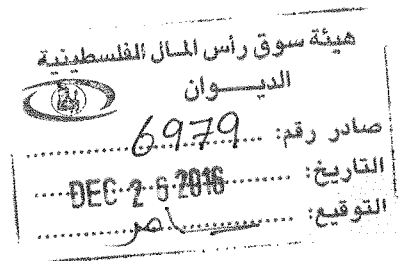 هيئة سوق رأس المال الفلسطينية
الديـــوان
صادر رقم: 6979
التاريخ: DEC 2 6 2016
التوقيع: